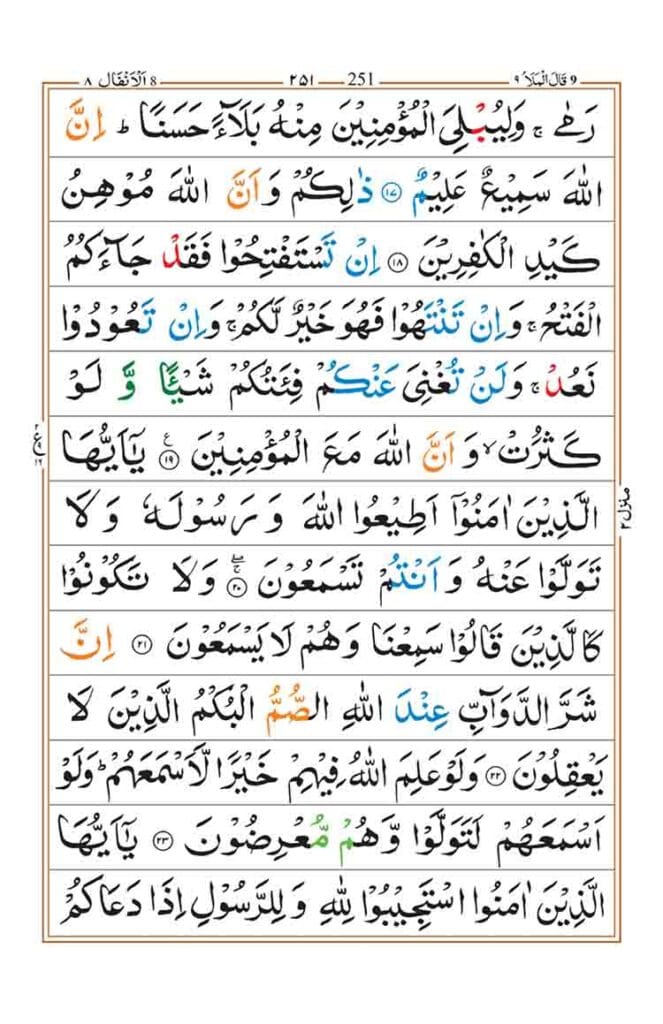 9 قَالَ الْمَلَاُ ٩
251 ٢٥١
8 اَلْاَنْفَال ٨
رَمٰى ۚ وَلِيُبْلِيَ الْمُؤْمِنِيْنَ مِنْهُ بَلَآءً حَسَنًا ؕ اِنَّ
اللّٰهَ سَمِيْعٌ عَلِيْمٌ ۝١٧ ذٰلِكُمْ وَاَنَّ اللّٰهَ مُوْهِنُ
كَيْدِ الْكٰفِرِيْنَ ۝١٨ اِنْ تَسْتَفْتِحُوْا فَقَدْ جَآءَكُمُ
الْفَتْحُ ۚ وَاِنْ تَنْتَهُوْا فَهُوَ خَيْرٌ لَّكُمْ ۚ وَاِنْ تَعُوْدُوْا
نَعُدْ ۚ وَلَنْ تُغْنِيَ عَنْكُمْ فِئَتُكُمْ شَيْـًٔا وَّ لَوْ
كَثُرَتْ ۙ وَاَنَّ اللّٰهَ مَعَ الْمُؤْمِنِيْنَ ۝١٩ ع يٰۤاَيُّهَا
الَّذِيْنَ اٰمَنُوْۤا اَطِيْعُوا اللّٰهَ وَ رَسُوْلَهٗ وَ لَا
تَوَلَّوْا عَنْهُ وَاَنْتُمْ تَسْمَعُوْنَ ۝٢٠ وَلَا تَكُوْنُوْا
كَالَّذِيْنَ قَالُوْا سَمِعْنَا وَهُمْ لَا يَسْمَعُوْنَ ۝٢١ اِنَّ
شَرَّ الدَّوَآبِّ عِنْدَ اللّٰهِ الصُّمُّ الْبُكْمُ الَّذِيْنَ لَا
يَعْقِلُوْنَ ۝٢٢ وَلَوْ عَلِمَ اللّٰهُ فِيْهِمْ خَيْرًا لَّاَسْمَعَهُمْ ؕ وَلَوْ
اَسْمَعَهُمْ لَتَوَلَّوْا وَّهُمْ مُّعْرِضُوْنَ ۝٢٣ يٰۤاَيُّهَا
الَّذِيْنَ اٰمَنُوا اسْتَجِيْبُوْا لِلّٰهِ وَلِلرَّسُوْلِ اِذَا دَعَاكُمْ
منزل ٢